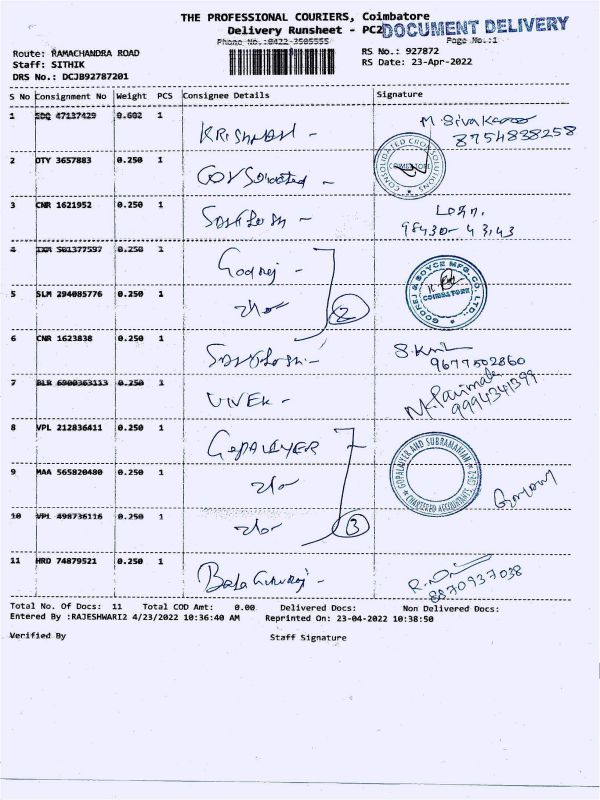 THE PROFESSIONAL COURIERS, Coimbatore
Delivery Runsheet - PC2
DOCUMENT DELIVERY
Phone No.:0422-3505555
Page No.:1
Route: RAMACHANDRA ROAD
RS No.: 927872
Staff: SITHIK
RS Date: 23-Apr-2022
DRS No.: DCJB92787201
S No Consignment No Weight PCS Consignee Details Signature
1 SDQ 47137429 0.602 1 KRISHNAN - M Sivakumar
8754838258
2 OTY 3657883 0.250 1 CONSOlidated - CONSOLIDATED COIMBATORE
3 CNR 1621952 0.250 1 Santhosh -
98430-43143
4 IXM 501377597 0.250 1 Godrej -
GODREJ & BOYCE MFG. CO. LTD., COIMBATORE
5 SLM 294085776 0.250 1 2
6 CNR 1623838 0.250 1 Santhosh - S.
9677502860
7 BLR 6900363113 0.250 1 VIVEK - M. Parimala
9994341399
8 VPL 212836411 0.250 1 GOPALAYER
GOPALAYER AND SUBRAMANIAN CHARTERED ACCOUNTANTS
9 MAA 565820480 0.250 1
10 VPL 498736116 0.250 1 3
11 HRO 74879521 0.250 1 Bala Gururaj - R.
8870937038
Total No. Of Docs: 11 Total COD Amt: 0.00 Delivered Docs: Non Delivered Docs:
Entered By :RAJESHWARI2 4/23/2022 10:36:40 AM Reprinted On: 23-04-2022 10:38:50
Verified By Staff Signature